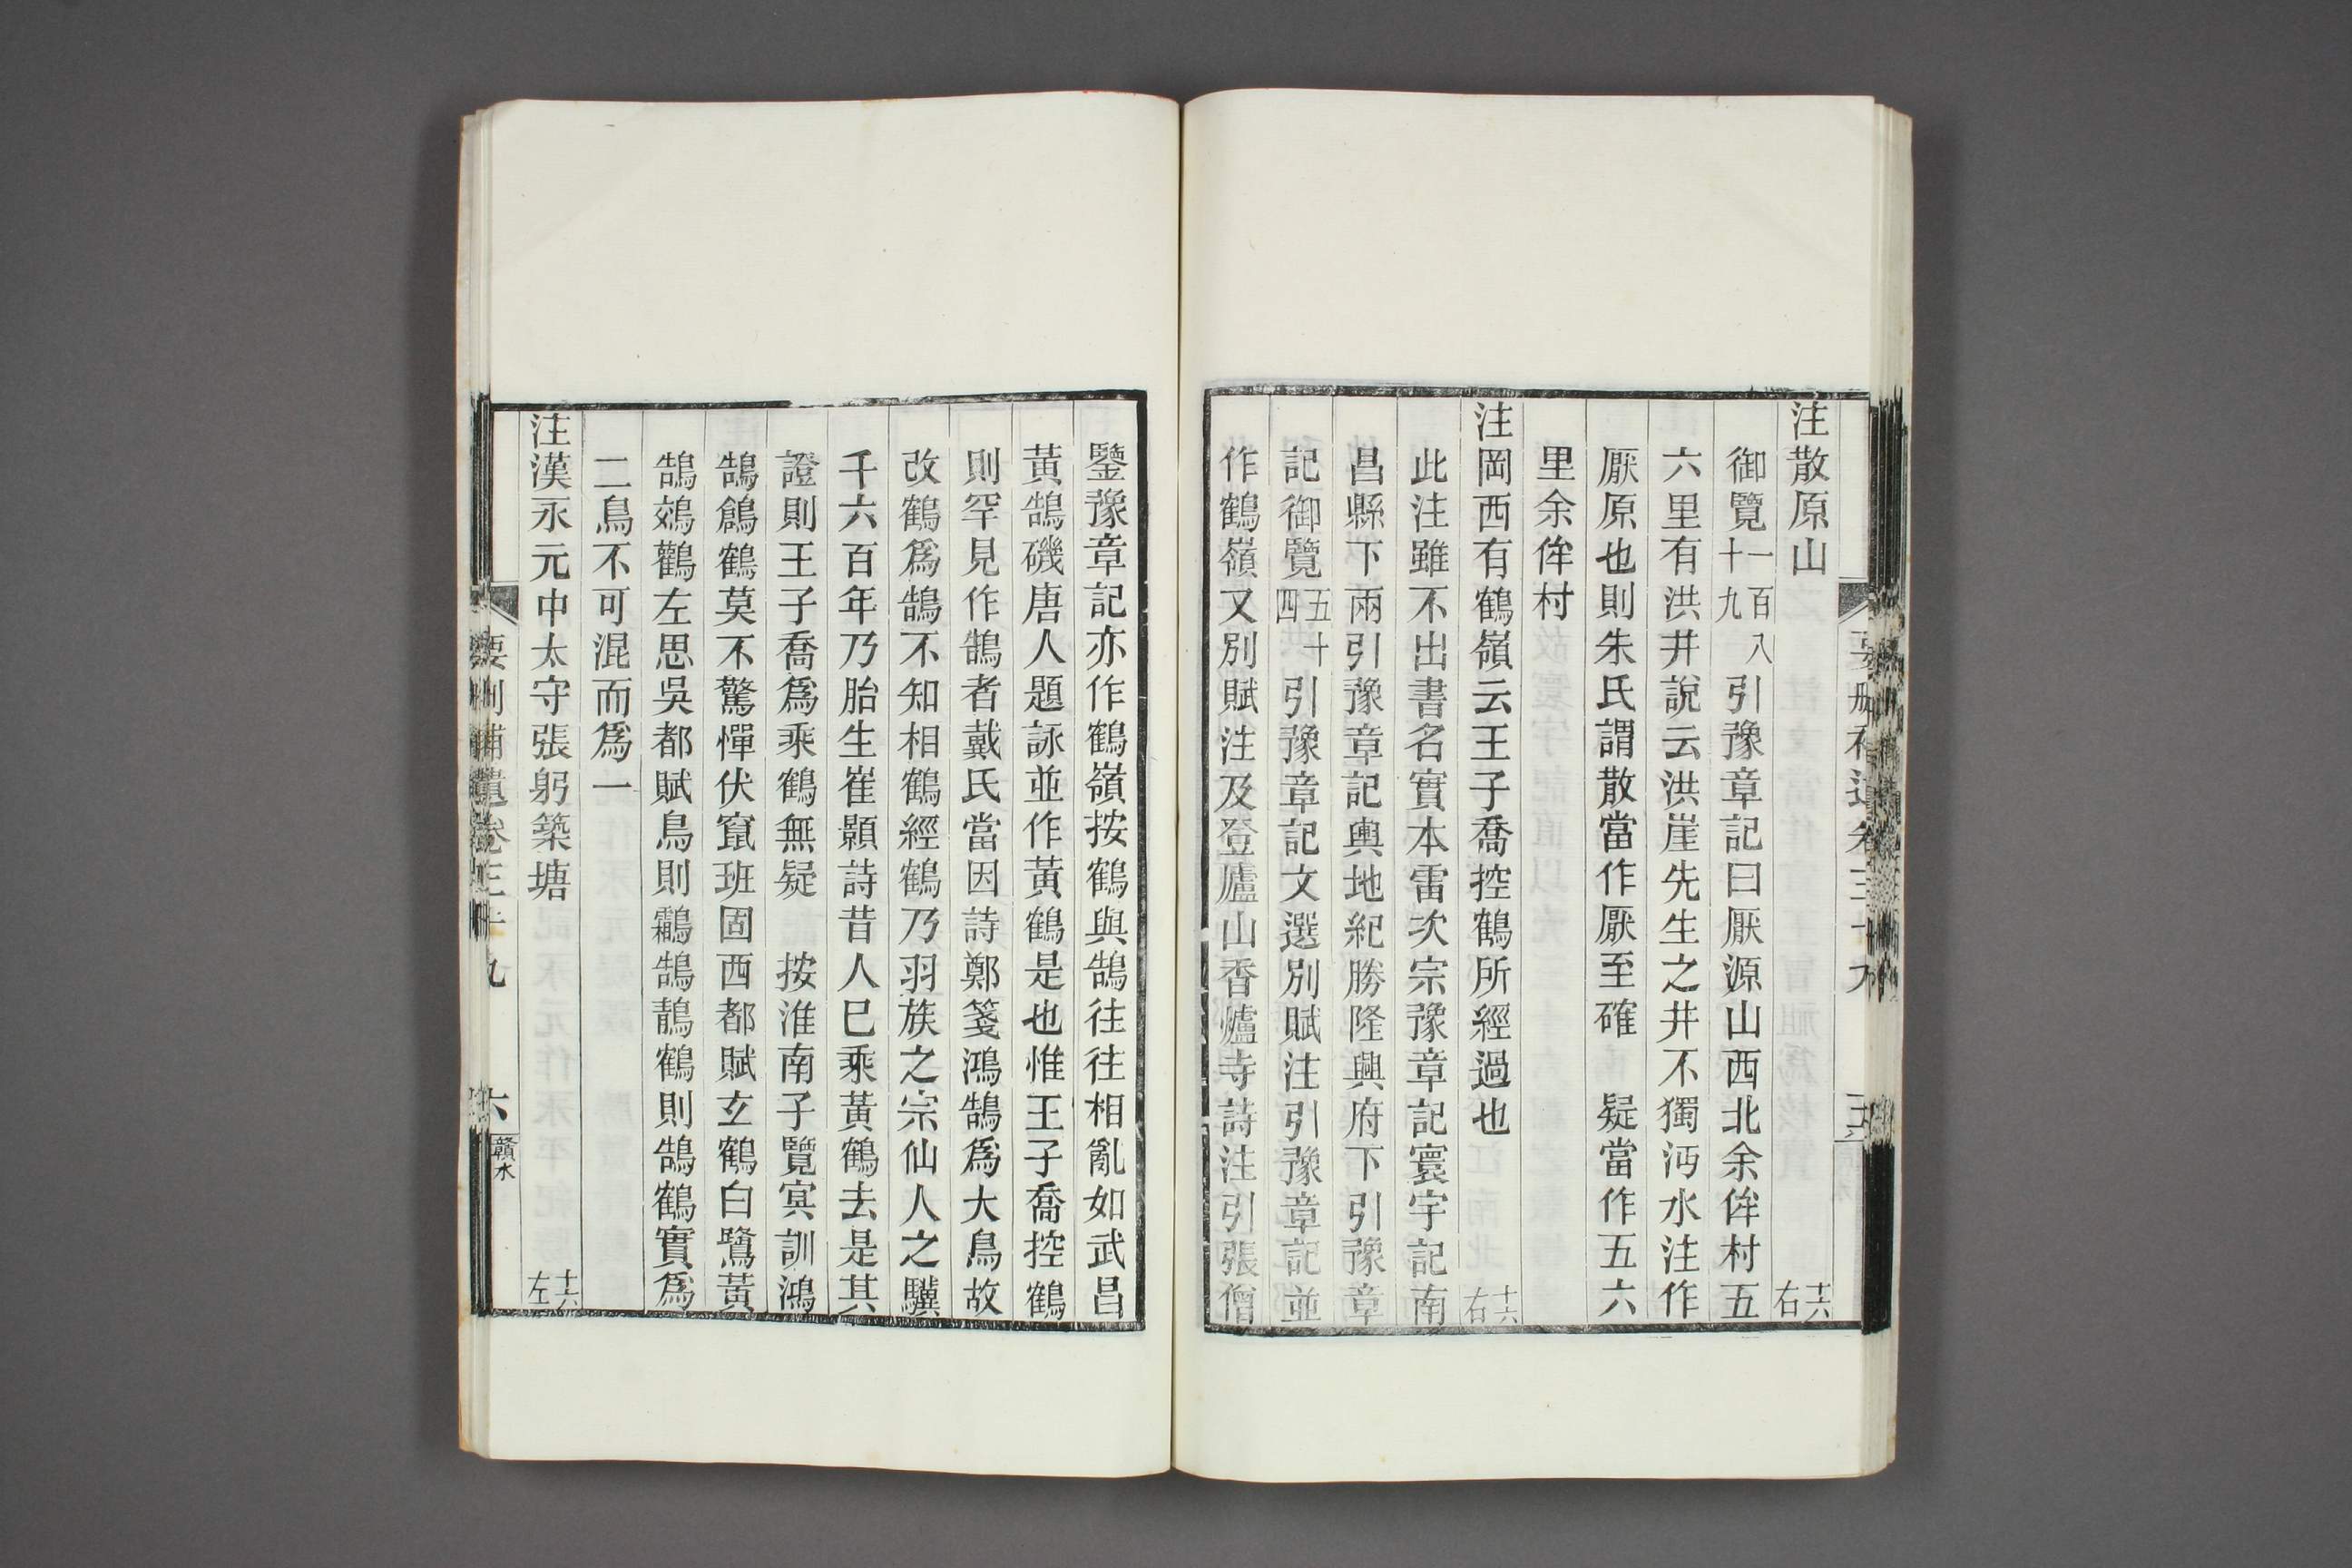 注散原山 十六右
御覽一百八十九引豫章記曰厭源山西北余侔村五
六里有洪井說云洪崖先生之井不獨沔水注作
厭原也則朱氏謂散當作厭至確 疑當作五六
里余侔村
注岡西有鶴嶺云王子喬控鶴所經過也 十六右
此注雖不出書名實本雷次宗豫章記寰宇記南
昌縣下兩引豫章記輿地紀勝隆興府下引豫章
記御覽五十四引豫章記文選別賦注引豫章記並
作鶴嶺又別賦注及登廬山香爐寺詩注引張僧
鑒豫章記亦作鶴嶺按鶴與鵠往往相亂如武昌
黃鵠磯唐人題詠並作黃鶴是也惟王子喬控鶴
則罕見作鵠者戴氏當因詩鄭箋鴻鵠爲大鳥故
改鶴爲鵠不知相鶴經鶴乃羽族之宗仙人之驥
千六百年乃胎生崔顥詩昔人已乘黃鶴去是其
證則王子喬爲乘鶴無疑 按淮南子覽冥訓鴻
鵠鶬鶴莫不驚憚伏竄班固西都賦玄鶴白鷺黃
鵠鵁鸛左思吳都賦鳥則鸘鵠鶄鶴則鵠鶴實爲
二鳥不可混而爲一
注漢永元中太守張躬築塘 十六左
要刪補遺卷三十九 六 贛水